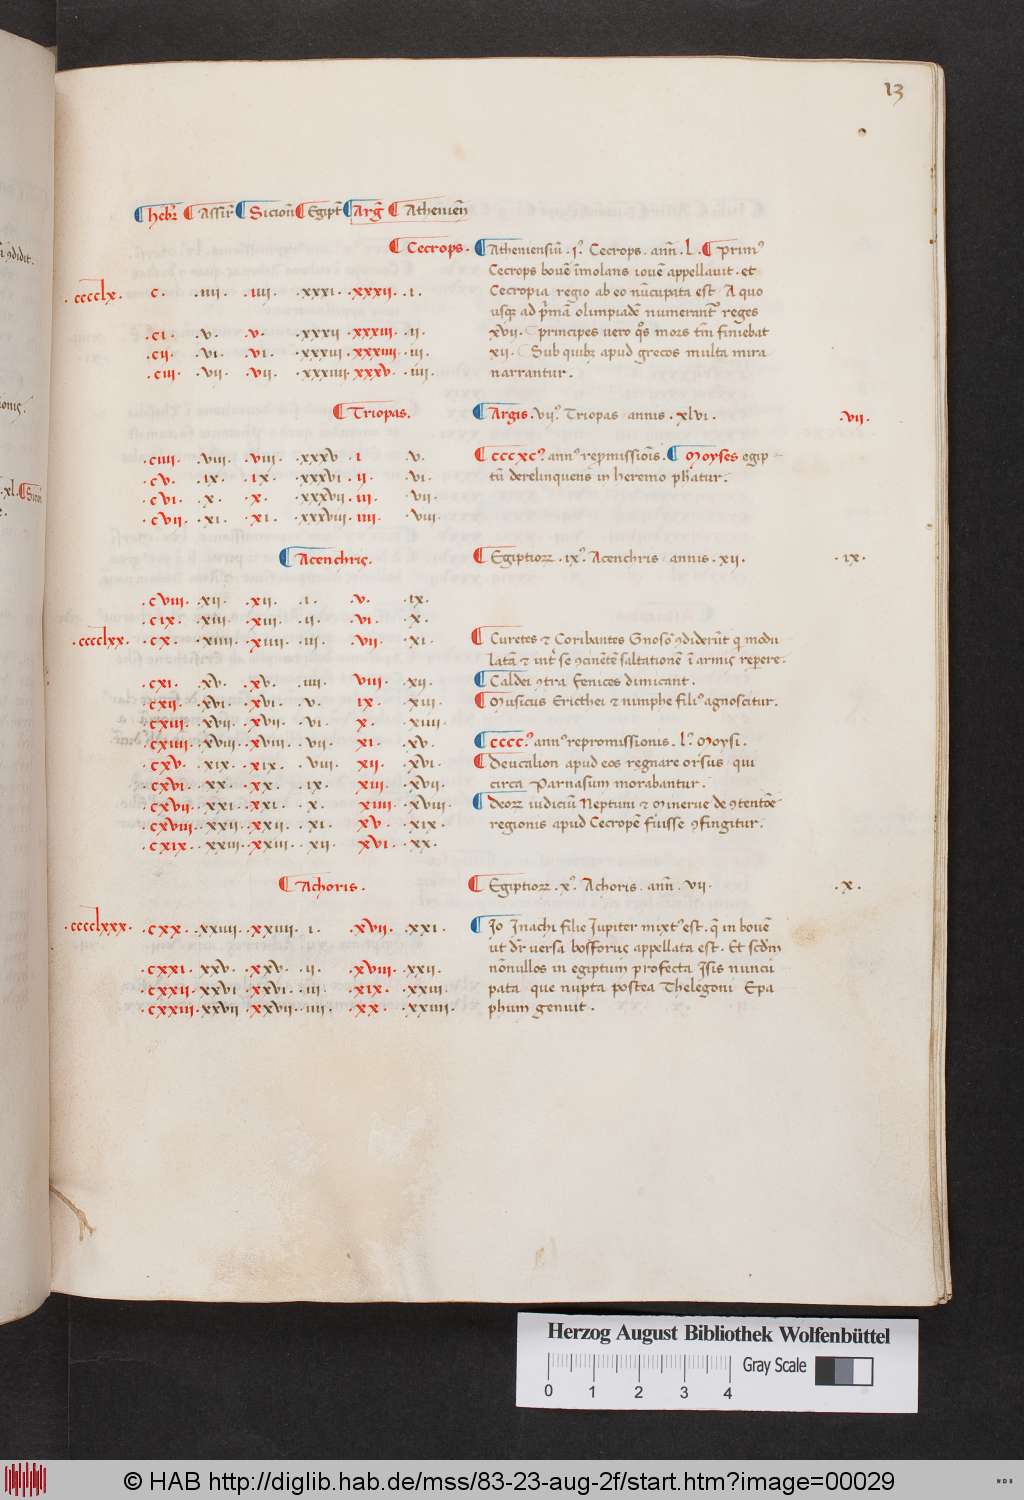 13
hebr̄ Assir̄ Sicion̄ Egipt̄ Arḡ Athenien̄
Cecrops. Atheniensiū .iꝰ. Cecrops. ann̄. l. Primꝰ
Cecrops bouē īmolans iouē appellauit. et
.cccclx. c. .iiii. .iiii. .xxxi. .xxxii. .i. Cecropia regio ab eo nūcupata est. A quo
usqꝫ ad p̄mā olimpiadē numerant᷑ reges
.ci. .v. .v. .xxxii .xxxiii. .ii. xvii. principes uero qōs mors tm̄ finiebat
.cii. .vi. .vi. .xxxiii .xxxiiii. .iii. xii. Sub quibꝫ apud grecos multa mira
.ciii. .vii. .vii. .xxxiiii. xxxv. .iiii. narrantur.
Triopas. Argis .viiꝰ. Triopas annis. xlvi. .vii.
.ciiii. .viii. .viii. .xxxv .i .v. cccxcꝰ. annꝰ repmissiōis. Moyses egip
.cv. .ix. .ix. .xxxvi .ii. .vi. tū derelinquens in heremo ph̄atur.
.cvi. .x. .x. .xxxvii .iii. .vii.
.cvii. .xi. .xi. .xxxviii. iiii. .viii.
Acenchris. Egiptioꝝ .ixꝰ. Acenchris annis. xii. .ix.
.cviii. .xii. .xii. .i. .v. .ix.
.cix. .xiii. .xiii. .ii. .vi. .x.
.cccclxx. .cx. .xiiii. .xiiii. .iii. .vii. .xi. Curetes ⁊ Coribantes Gnosō ꝯdiderūt q̄ modu
latā ⁊ int̄ se ꝯcinētē saltationē ī armis repere.
.cxi. .xv. .xv. .iiii. .viii. .xii. Caldei ꝯtra fenices dimicant.
.cxii. .xvi. .xvi. .v. .ix. .xiii. Musicus Ericthei ⁊ nimphe filiꝰ agnoscitur.
.cxiii. .xvii. .xvii. .vi. .x. .xiiii.
.cxiiii. .xviii. .xviii. .vii. .xi. .xv. ccccꝰ. annꝰ repromissionis. lꝰ. Moysi.
.cxv. .xix. .xix. .viii. .xii. .xvi. Deucalion apud eos regnare orsus qui
.cxvi. .xx. .xx. .ix. .xiii. .xvii. circa Parnasum morabantur.
.cxvii. .xxi. .xxi. .x. .xiiii. .xviii. Deoꝝ iudiciū Neptuni ⁊ Minerue de ꝯtentōe
.cxviii. .xxii. .xxii. .xi. .xv. .xix. regionis apud Cecropē fuisse ꝯfingitur.
.cxix. .xxiii. .xxiii. .xii. .xvi. .xx.
Achoris. Egiptioꝝ .xꝰ. Achoris. ann̄. vii. .x.
.cccclxxx. .cxx. .xxiiii. .xxiiii. .i. .xvii. .xxi. Jo Jnachi filie Jupiter mixtꝰ est. q̄ in bouē
ut dr̄ uersa bosforus appellata est. Et scd̄m
.cxxi. .xxv. .xxv. .ii. .xviii. .xxii. nōnullos in egiptum profecta Jsis nuncu
.cxxii. .xxvi .xxvi. .iii. .xix. .xxiii. pata que nupta postea Thelegoni Epa
.cxxiii. .xxvii .xxvii. .iiii. .xx. .xxiiii. phum genuit.
Herzog August Bibliothek Wolfenbüttel
Gray Scale
0 1 2 3 4
© HAB http://diglib.hab.de/mss/83-23-aug-2f/start.htm?image=00029